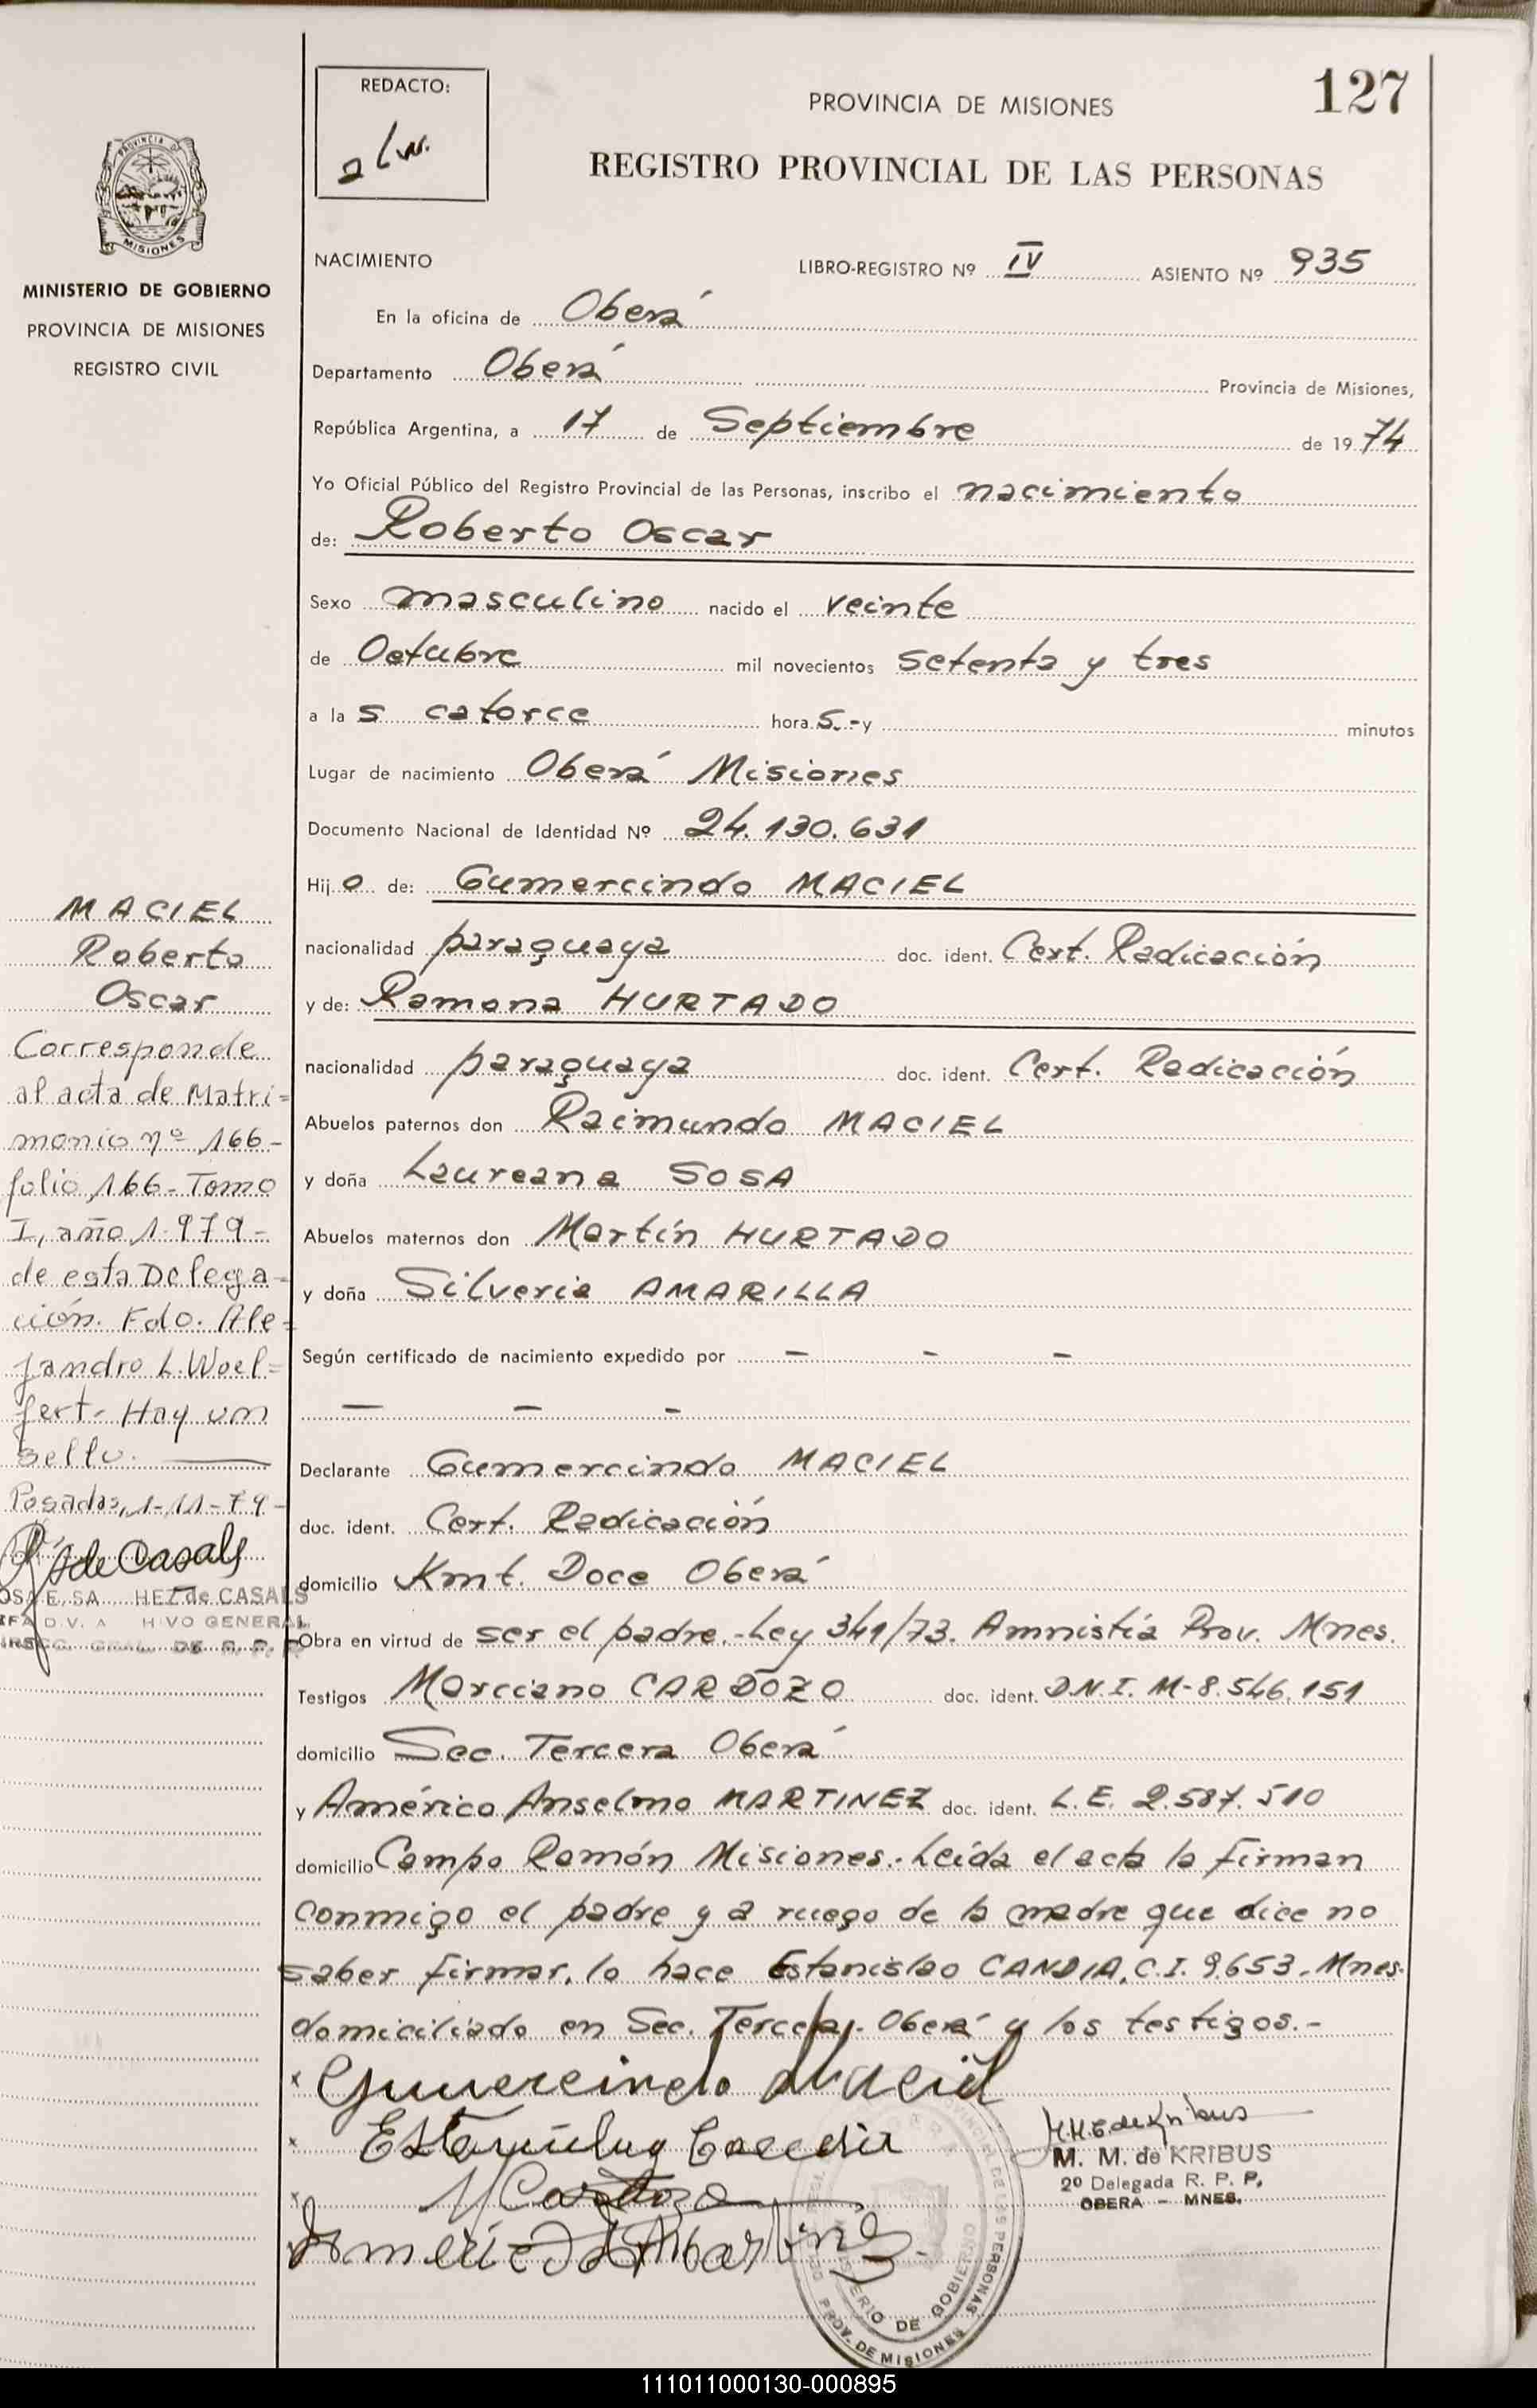 127
REDACTO:
PROVINCIA DE MISIONES
REGISTRO PROVINCIAL DE LAS PERSONAS
PROVINCIA DE
MISIONES
MINISTERIO DE GOBIERNO
PROVINCIA DE MISIONES
REGISTRO CIVIL
NACIMIENTO LIBRO-REGISTRO Nº IV ASIENTO Nº 935
En la oficina de Oberá
Departamento Oberá Provincia de Misiones,
República Argentina, a 17 de Septiembre de 1974
Yo Oficial Público del Registro Provincial de las Personas, inscribo el nacimiento
de: Roberto Oscar
Sexo masculino nacido el veinte
de Octubre mil novecientos setenta y tres
a las catorce horas.- y minutos
Lugar de nacimiento Oberá Misiones
Documento Nacional de Identidad Nº 24.130.631
Hijo de: Gumercindo MACIEL
nacionalidad paraguaya doc. ident. Cert. Radicación
y de: Ramona HURTADO
nacionalidad paraguaya doc. ident. Cert. Radicación
Abuelos paternos don Raimundo MACIEL
y doña Laureana SOSA
Abuelos maternos don Martín HURTADO
y doña Silveria AMARILLA
Según certificado de nacimiento expedido por - - -
- - -
Declarante Gumercindo MACIEL
doc. ident. Cert. Radicación
domicilio Kmt. Doce Oberá
Obra en virtud de ser el padre.-Ley 341/73. Amnistía Prov. Mnes.
Testigos Marciano CARDOZO doc. ident. D.N.I. M-8.546.151
domicilio Sec. Tercera Oberá
y Américo Anselmo MARTINEZ doc. ident. L.E. 2.587.510
domicilio Campo Ramón Misiones.- Leída el acta la firman
conmigo el padre y a ruego de la madre que dice no
saber firmar, lo hace Estanislao CANDIA, C.I. 9.653. Mnes.
domiciliado en Sec. Tercera.- Oberá y los testigos.-
x Gumercindo Maciel
x Estanislao Candia
x M Cardozo
Americo A Martinez
M.M.G de Kribus
M. M. de KRIBUS
2º Delegada R. P. P.
OBERA - MNES.
PROVINCIAL DE LAS PERSONAS
MINISTERIO DE GOBIERNO
PROV. DE MISIONES
MACIEL
Roberto
Oscar
Corresponde
al acta de Matri=
monio nº 166-
folio 166- Tomo
I, año 1.979-
de esta Delega=
ción. Fdo. Ale=
jandro L. Woel=
fert- Hay un
sello.
Posadas, 1-11-79-
de Casals
HEZ de CASALS
GENERAL
111011000130-000895